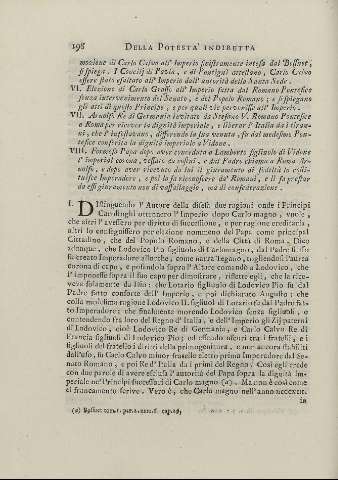 198 DELLA POTESTA' INDIRETTA
mozione di Carlo Calvo all' Imperio sinistramente intesa dal Bossuet,
si spiega. I Concilj di Pavia, e di Pontigni attestano, Carlo Calvo
essere stato esaltato all' Imperio dall' autorità della Santa Sede.
VI. Elezione di Carlo Grosso all' Imperio fatta dal Romano Pontefice
senza intervenimento del Senato, e del Popolo Romano; e si spiegano
gli atti di questo Principe, e per quali vie pervenisse all' Imperio.
VII. Arnolfo Re di Germania invitato da Stefano V. Romano Pontefice
a Roma per ricevere la dignità imperiale, e liberar l' Italia da i tiran-
ni, che l' infestavano, differendo la sua venuta, fu dal medesimo Pon-
tefice conferita la dignità imperiale a Vidone.
VIII. Formoso Papa dopo aver conceduta a Lamberto figliuolo di Vidone
l' imperial corona, vessato da costui, e dal Padre chiama a Roma Ar-
nolfo, e dopo aver ricevuto da lui il giuramento di fedeltà lo costi-
tuisce Imperadore, e poi lo fa riconoscere da' Romani, e si fa prestar
da essi giuramento non di vassallaggio, ma di confederazione.
I. Distinguendo l' Autore della difesa due ragioni onde i Principi
Carolinghi ottennero l' Imperio dopo Carlo magno, vuole,
che altri l' avessero per diritto di successione, e per ragione ereditaria,
altri lo conseguissero per elezione nommeno del Papa come principal
Cittadino, che del Popolo Romano, e della Città di Roma. Dico
adunque, che Lodovico Pio figliuolo di Carlomagno, dal Padre stesso
fu creato Imperadore allorchè, come narra Tegano, togliendosi l' aurea
corona di capo, e posandola sopra l' Altare comandò a Lodovico, che
l' imponesse sopra il suo capo per dimostrare, riflette egli, che la rice-
veva solamente da Dio: che Lotario figliuolo di Lodovico Pio fu dal
Padre fatto consorte dell' Imperio, e poi dichiarato Augusto: che
colla medesima ragione Lodovico II. figliuolo di Lotario fu dal Padre fatto
Imperadore: che finalmente morendo Lodovico senza figliuoli, e
contendendo fra loro del Regno d' Italia, e dell' Imperio gli Zii paterni
di Lodovico, cioè Lodovico Re di Germania, e Carlo Calvo Re di
Francia figliuoli di Lodovico Pio; ed essendo oscuri tra i fratelli, e i
figliuoli del fratello i diritti della primogenitura, e non ancora stabiliti
dall' uso, fu Carlo Calvo minor fratello eletto prima Imperadore dal Se-
nato Romano, e poi Re d' Italia da i primi del Regno. Così egli crede
con due parole di avere esclusa l' autorità del Papa sopra la dignità im-
periale ne' Principi successori di Carlo magno (a). Ma non è così come
ei francamente scrive. Vero è, che Carlo magno nell' anno DCCCXIII.
in
(a) Bossuet tom. 1. par. 2.